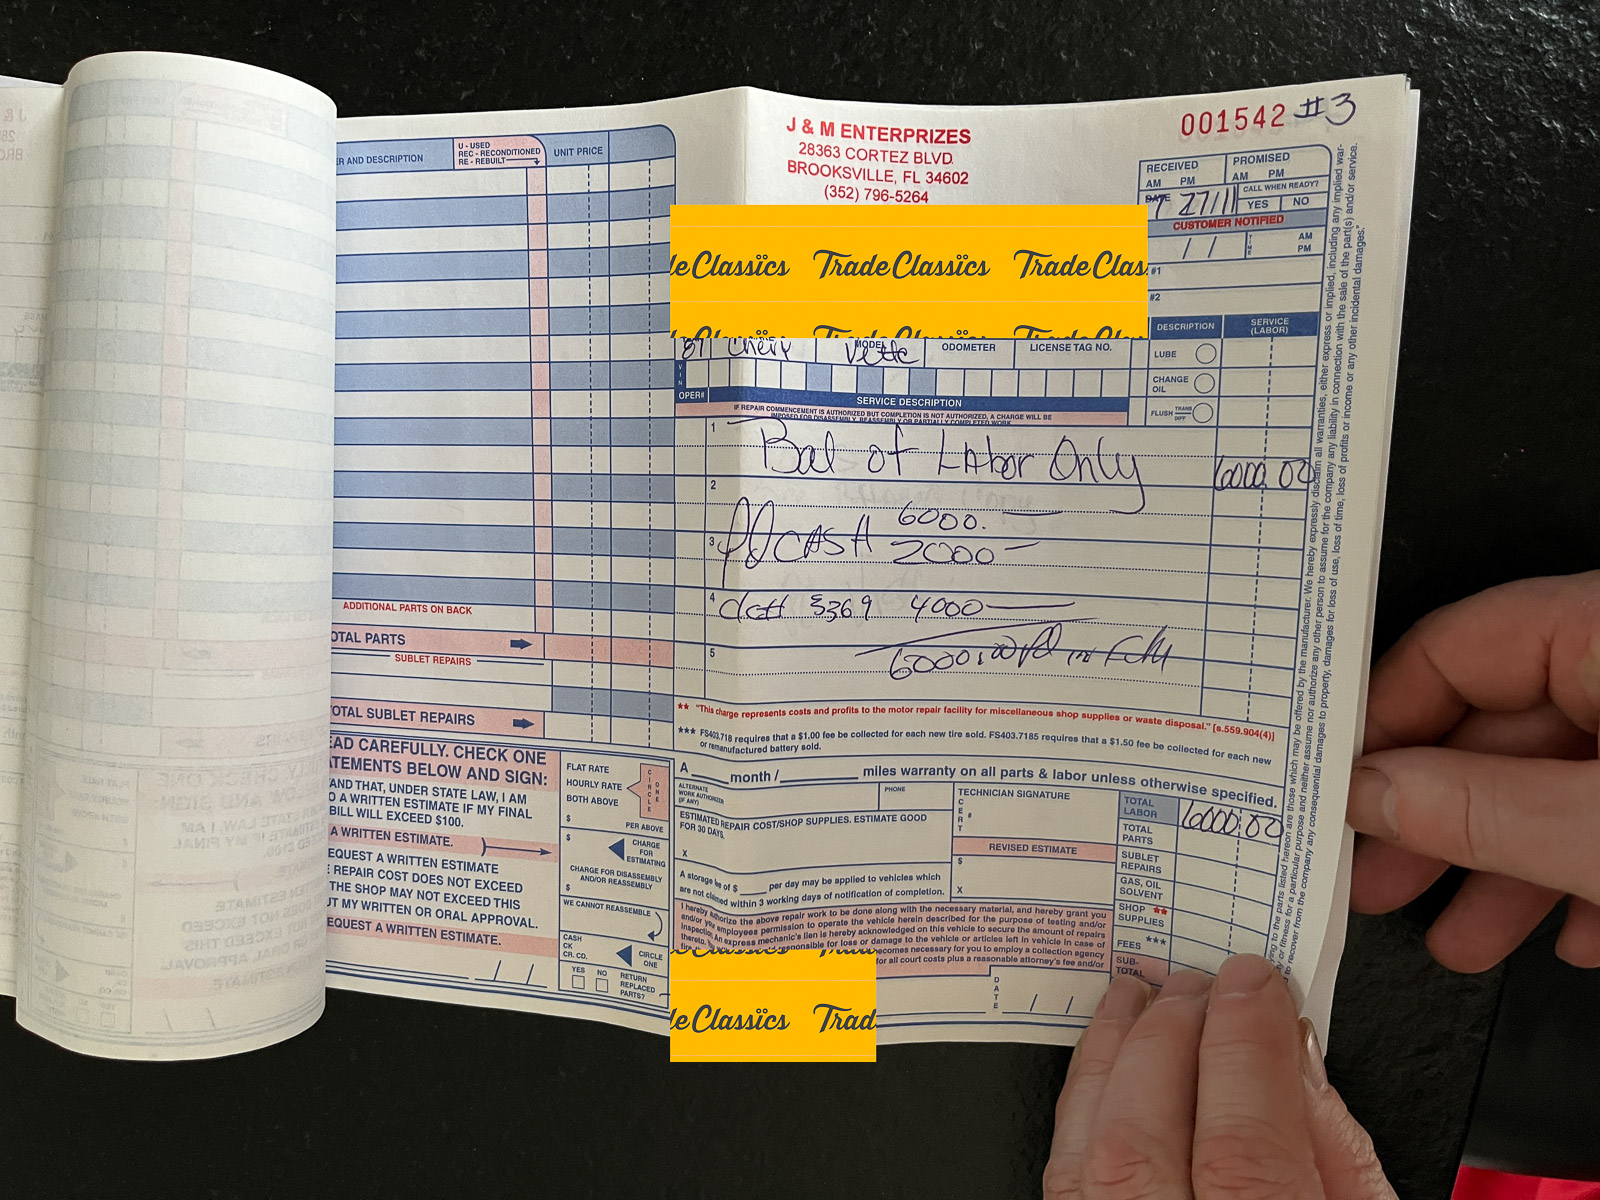 ER AND DESCRIPTION
U - USED
REC - RECONDITIONED
RE - REBUILT
UNIT PRICE
ADDITIONAL PARTS ON BACK
OTAL PARTS
SUBLET REPAIRS
OTAL SUBLET REPAIRS
EAD CAREFULLY. CHECK ONE
ATEMENTS BELOW AND SIGN:
AND THAT, UNDER STATE LAW, I AM
O A WRITTEN ESTIMATE IF MY FINAL
BILL WILL EXCEED $100.
A WRITTEN ESTIMATE.
EQUEST A WRITTEN ESTIMATE
E REPAIR COST DOES NOT EXCEED
THE SHOP MAY NOT EXCEED THIS
UT MY WRITTEN OR ORAL APPROVAL.
EQUEST A WRITTEN ESTIMATE.
/ /
FLAT RATE
HOURLY RATE
BOTH ABOVE
CIRCLE ONE
$ PER ABOVE
$ CHARGE FOR ESTIMATING
CHARGE FOR DISASSEMBLY
AND/OR REASSEMBLY
$
WE CANNOT REASSEMBLE
CASH
CK
CR. CD.
CIRCLE ONE
YES NO
RETURN REPLACED PARTS?
J & M ENTERPRIZES
28363 CORTEZ BLVD.
BROOKSVILLE, FL 34602
(352) 796-5264
001542 #3
RECEIVED
AM PM
PROMISED
AM PM
DATE 27/11
CALL WHEN READY?
YES NO
CUSTOMER NOTIFIED
/ / TIME AM PM
#1
#2
leClassics TradeClassics TradeClas
87 Chevy
MODEL Vette
ODOMETER
LICENSE TAG NO.
VIN
OPER#
SERVICE DESCRIPTION
IF REPAIR COMMENCEMENT IS AUTHORIZED BUT COMPLETION IS NOT AUTHORIZED, A CHARGE WILL BE
IMPOSED FOR DISASSEMBLY, REASSEMBLY OR PARTIALLY COMPLETED WORK.
DESCRIPTION
SERVICE (LABOR)
LUBE
CHANGE OIL
FLUSH TRANS DIFF
1 Bal of Labor Only 6000.00
2
6000.
3 pd CASH 2000
4 ck# 5369 4000
5 6000.00 pd in full
** "This charge represents costs and profits to the motor repair facility for miscellaneous shop supplies or waste disposal." [s.559.904(4)]
*** FS403.718 requires that a $1.00 fee be collected for each new tire sold. FS403.7185 requires that a $1.50 fee be collected for each new
or remanufactured battery sold.
A month / miles warranty on all parts & labor unless otherwise specified.
ALTERNATE WORK AUTHORIZER (IF ANY)
PHONE
ESTIMATED REPAIR COST/SHOP SUPPLIES. ESTIMATE GOOD
FOR 30 DAYS.
X
A storage fee of $ per day may be applied to vehicles which
are not claimed within 3 working days of notification of completion.
TECHNICIAN SIGNATURE
CERT #
REVISED ESTIMATE
$
X
I hereby authorize the above repair work to be done along with the necessary material, and hereby grant you
and/or employees permission to operate the vehicle herein described for the purpose of testing and/or
inspection. An express mechanic's lien is hereby acknowledged on this vehicle to secure the amount of repairs
thereto. responsible for loss or damage to the vehicle or articles left in vehicle in case of
necessary for you to employ a collection agency
for all court costs plus a reasonable attorney's fee and/or
leClassics Trad
DATE / /
TOTAL LABOR 6000.00
TOTAL PARTS
SUBLET REPAIRS
GAS, OIL SOLVENT
SHOP ** SUPPLIES
FEES ***
SUB-TOTAL
those which may be offered by the manufacturer. We hereby expressly disclaim all warranties, either express or implied, including any implied war-